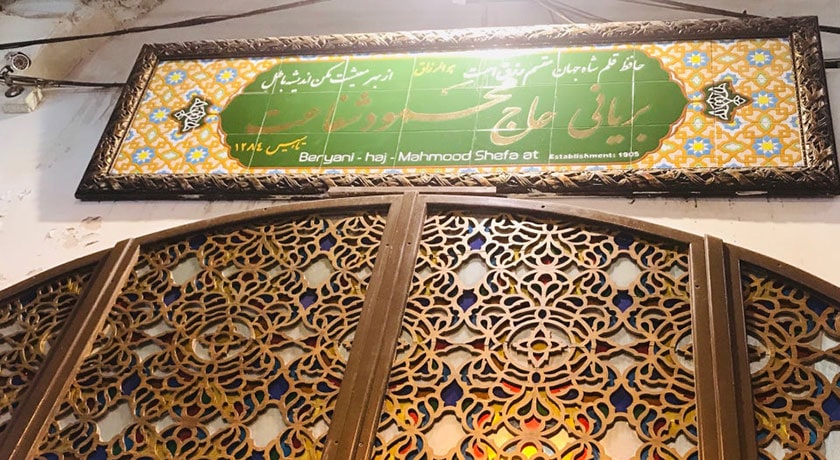 حافظ قلم شاه جهان مقسم رزق است
هو الرزاق
از بهر معیشت مکن اندیشه باطل
بریانی حاج محمود شفاعت
تاسیس ۱۲۸۴
Beryani - haj - Mahmood Shefa at Establishment: 1905